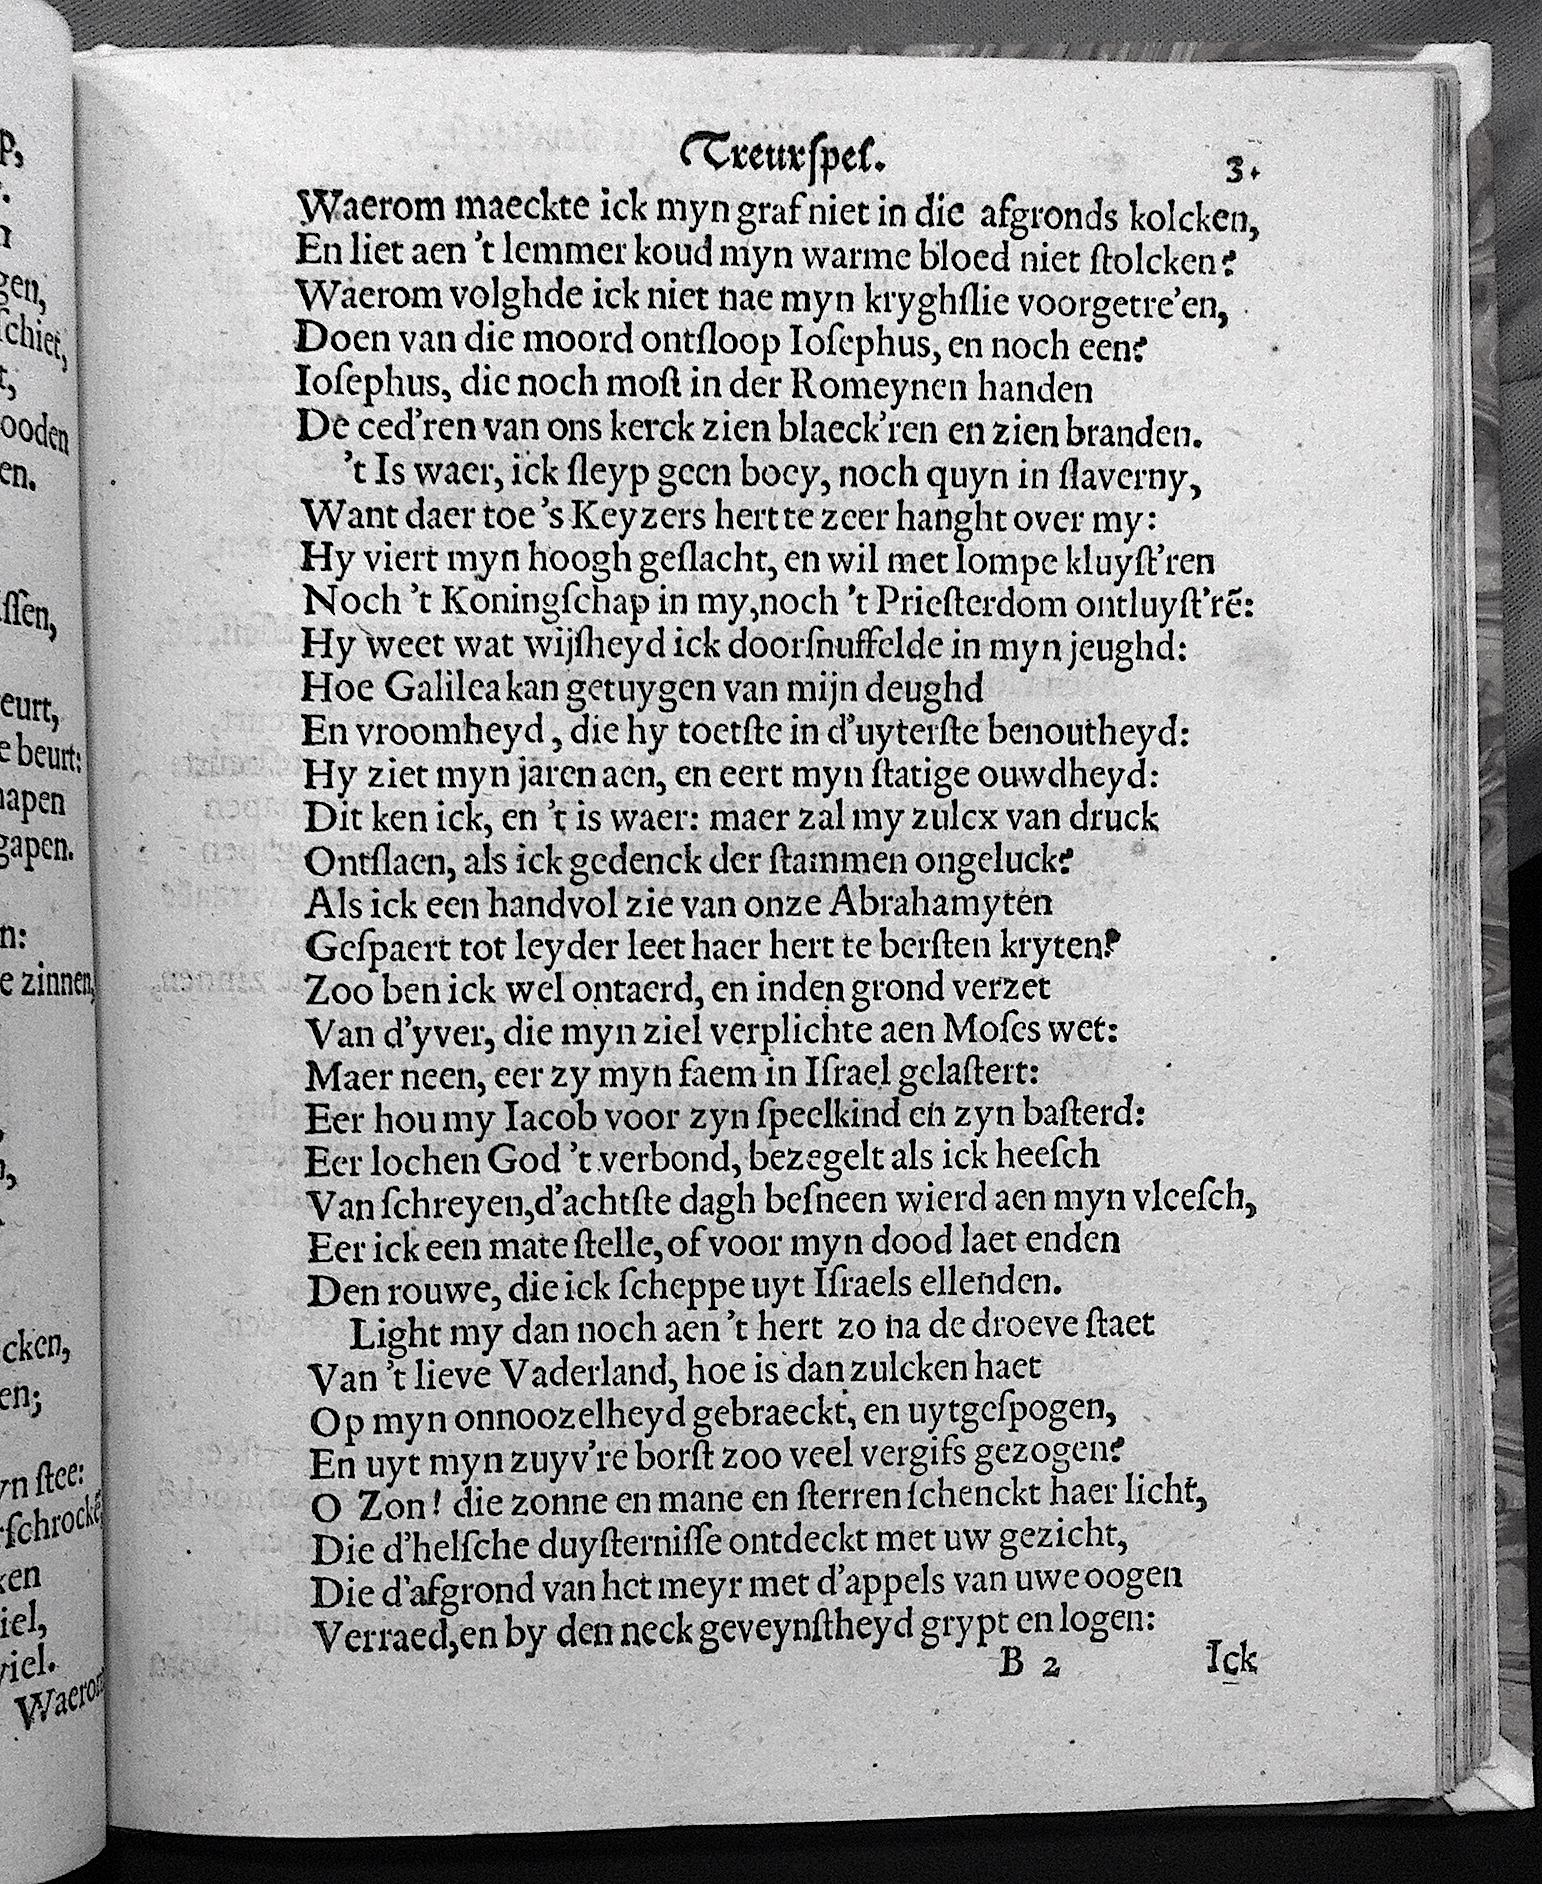 Treurſpel. 3.
Waerom maeckte ick myn graf niet in die afgronds kolcken,
En liet aen 't lemmer koud myn warme bloed niet ſtolcken?
Waerom volghde ick niet nae myn kryghſlie voorgetre'en,
Doen van die moord ontſloop Ioſephus, en noch een?
Ioſephus, die noch moſt in der Romeynen handen
De ced'ren van ons kerck zien blaeck'ren en zien branden.
't Is waer, ick ſleyp geen boey, noch quyn in ſlaverny,
Want daer toe 's Keyzers hert te zeer hanght over my:
Hy viert myn hoogh geſlacht, en wil met lompe kluyſt'ren
Noch 't Koningſchap in my, noch 't Prieſterdom ontluyſt'rẽ:
Hy weet wat wijſheyd ick doorſnuffelde in myn jeughd:
Hoe Galilea kan getuygen van mijn deughd
En vroomheyd, die hy toetſte in d'uyterſte benoutheyd:
Hy ziet myn jaren aen, en eert myn ſtatige ouwdheyd:
Dit ken ick, en 't is waer: maer zal my zulcx van druck
Ontſlaen, als ick gedenck der ſtammen ongeluck?
Als ick een handvol zie van onze Abrahamyten
Geſpaert tot leyder leet haer hert te berſten kryten?
Zoo ben ick wel ontaerd, en inden grond verzet
Van d'yver, die myn ziel verplichte aen Moſes wet:
Maer neen, eer zy myn faem in Iſrael gelaſtert:
Eer hou my Iacob voor zyn ſpeelkind en zyn baſterd:
Eer lochen God 't verbond, bezegelt als ick heeſch
Van ſchreyen, d'achtſte dagh beſneen wierd aen myn vleeſch,
Eer ick een mate ſtelle, of voor myn dood laet enden
Den rouwe, die ick ſcheppe uyt Iſraels ellenden.
Light my dan noch aen 't hert zo na de droeve ſtaet
Van 't lieve Vaderland, hoe is dan zulcken haet
Op myn onnoozelheyd gebraeckt, en uytgeſpogen,
En uyt myn zuyv're borſt zoo veel vergifs gezogen?
O Zon! die zonne en mane en ſterren ſchenckt haer licht,
Die d'helſche duyſterniſſe ontdeckt met uw gezicht,
Die d'afgrond van het meyr met d'appels van uwe oogen
Verraed, en by den neck geveynſtheyd grypt en logen:
B 2 Ick